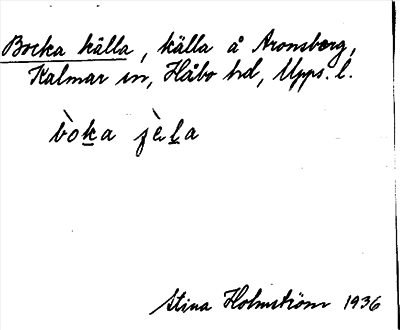 Bocka källa, källa å Aronsberg,
Kalmar sn, Håbo hd, Upps. l.
bòḵa jɛ̀ḻa
Stina Holmström 1936